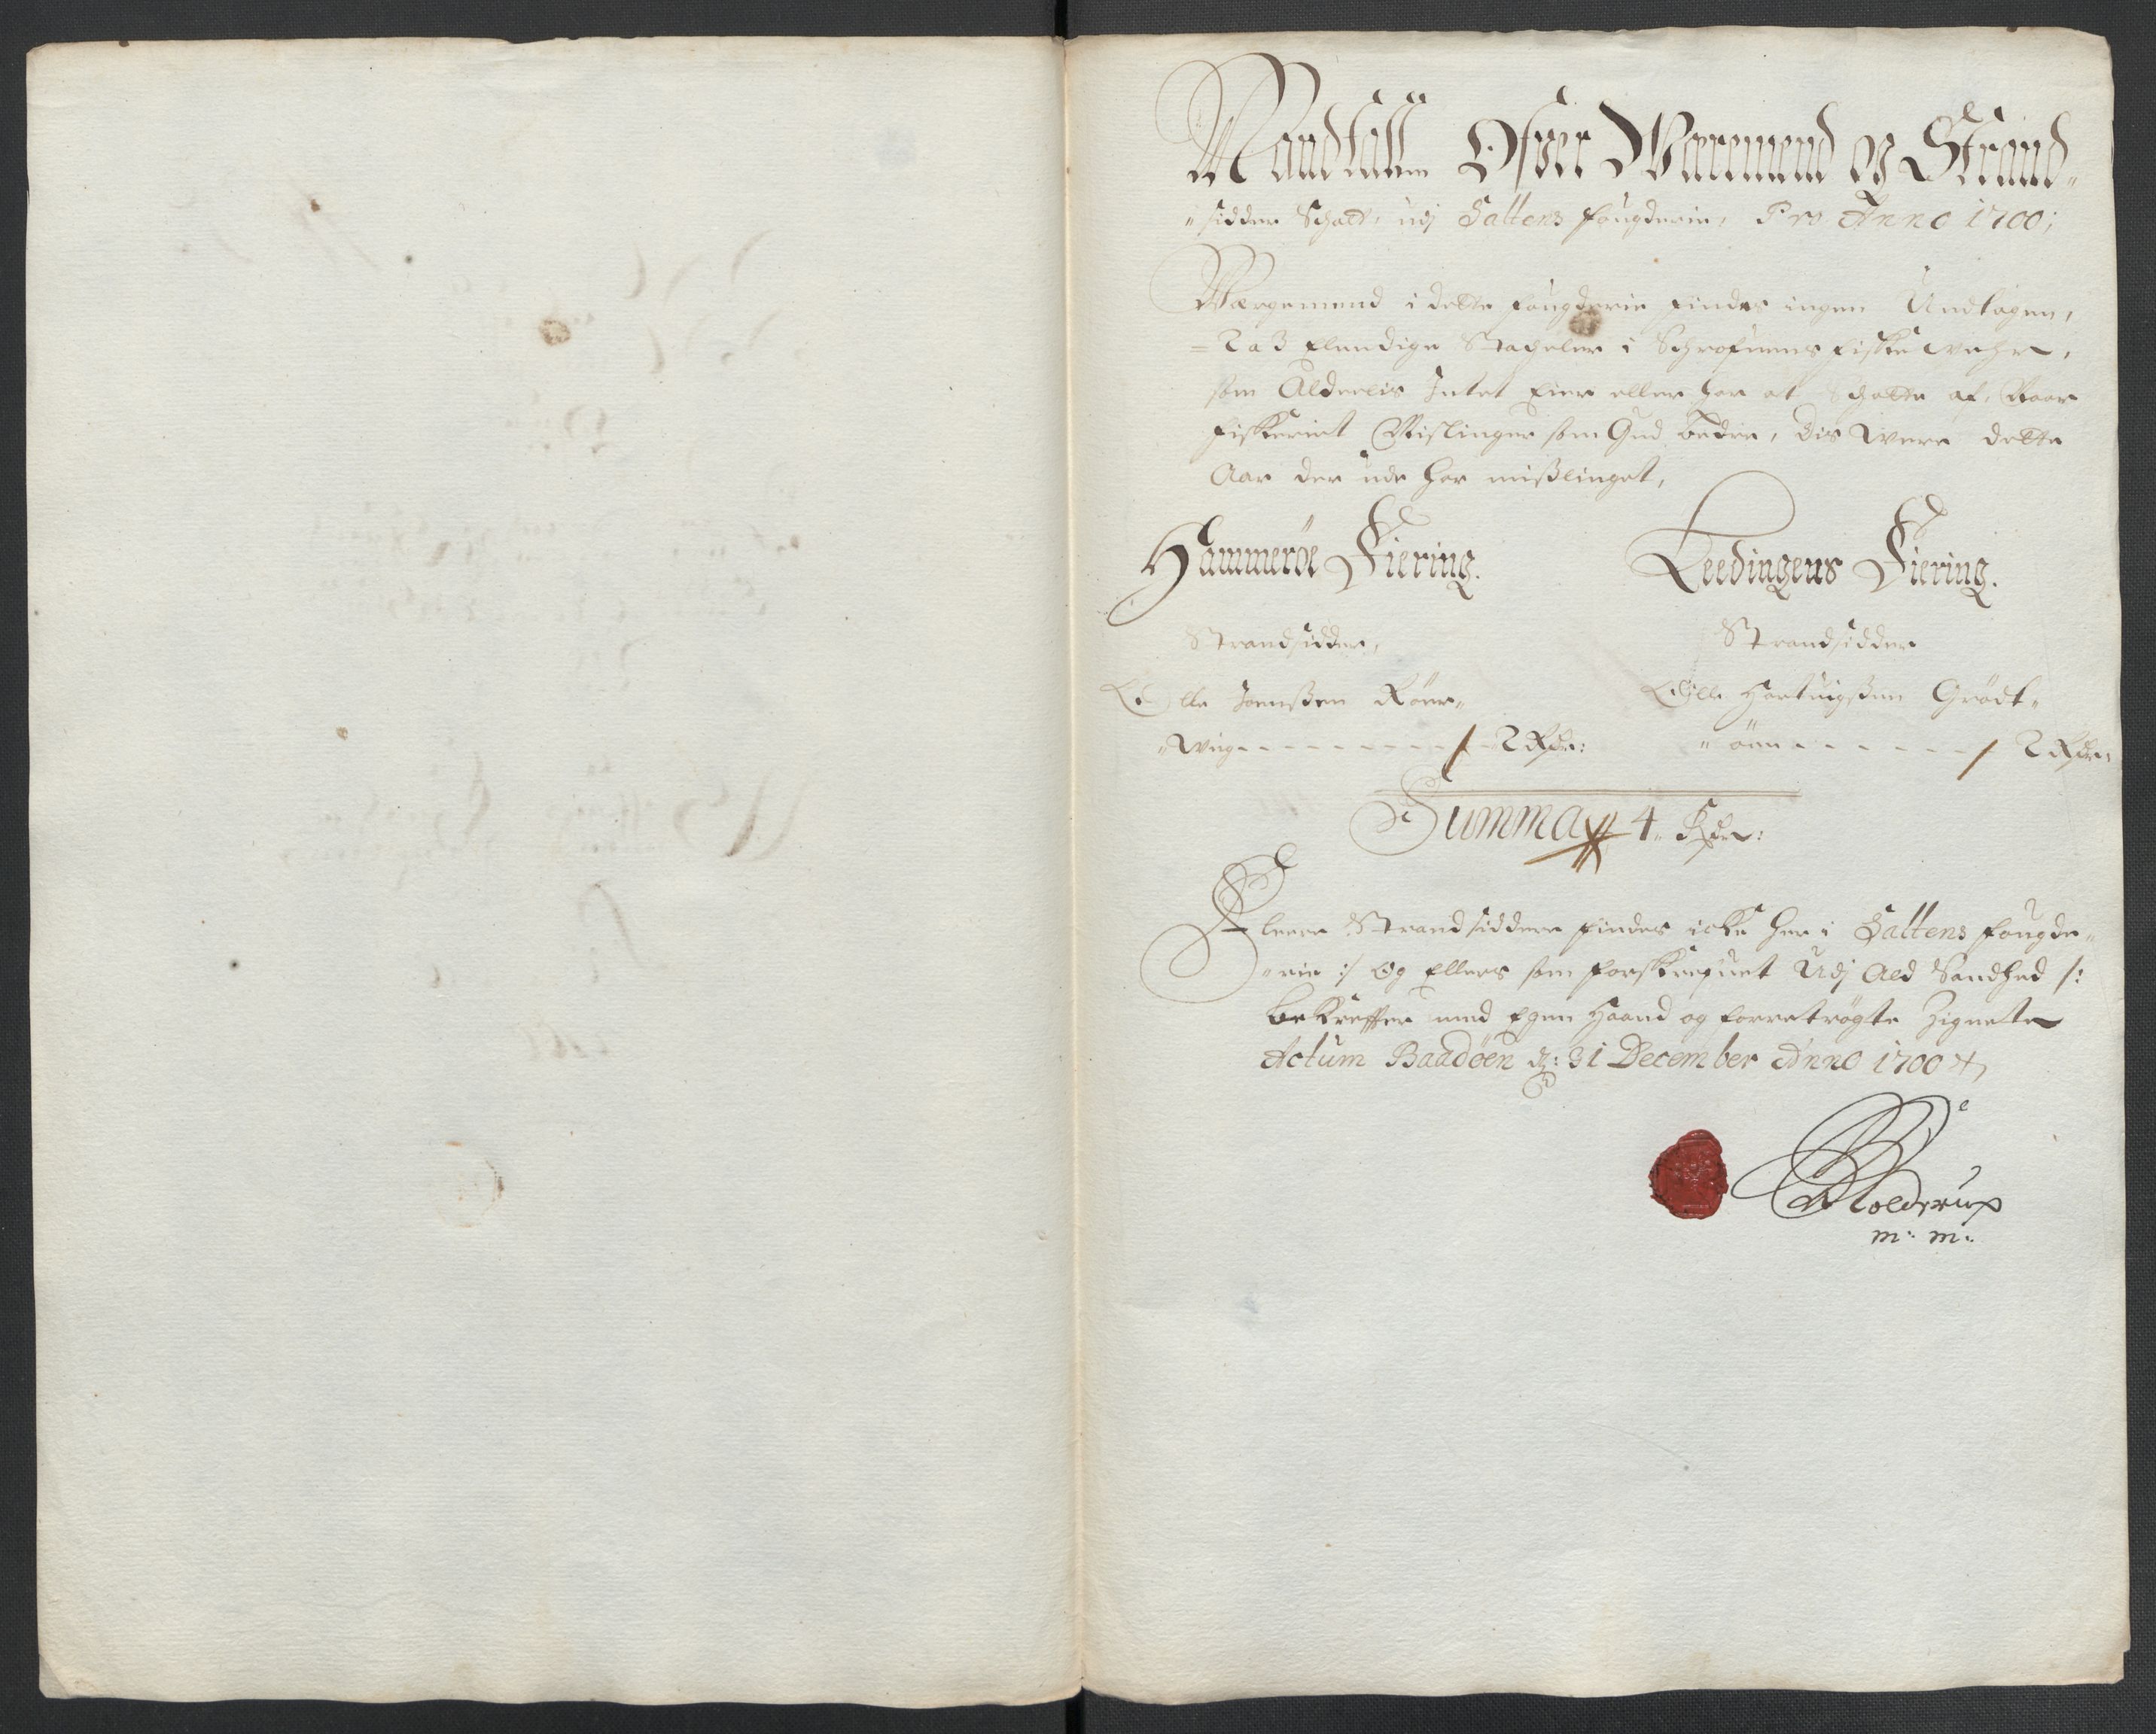 Mandtall Ofver Wæremend og Strand-
sidder Schatt, udj Saltens fougderie, Pro Anno 1700;
Wæremend i dette fougderie findes ingen Undtagen,
2 a 3 Elendige Stacheler i Schrofuens fiske wehr,
som Alderlis Intet Eier eller har at Schatte af, Naar
fiskeriet Misslinger som Gud bedre, dis were dette
Aar der ude har misslinget,
Hammerøe Fiering.
Strandsidder,
Olle Jonssen Röer-
wig - - - - / 2 Rdr:
Leedingens Fiering.
Strandsidder
Olle Hartuigssen Grödt-
öen - - - - / 2 Rdr:
Summa 4 Rdr:
Fleere Strandsiddere findes icke her i Saltens fougde-
rie :/ Og Ellers som forskrefuet Udj Ald Sandhed /:
bekrefter med Egen Haand og forretrögte Zignette
Actum Baadöen d: 31 December Anno 1700
Holderup
m: m: